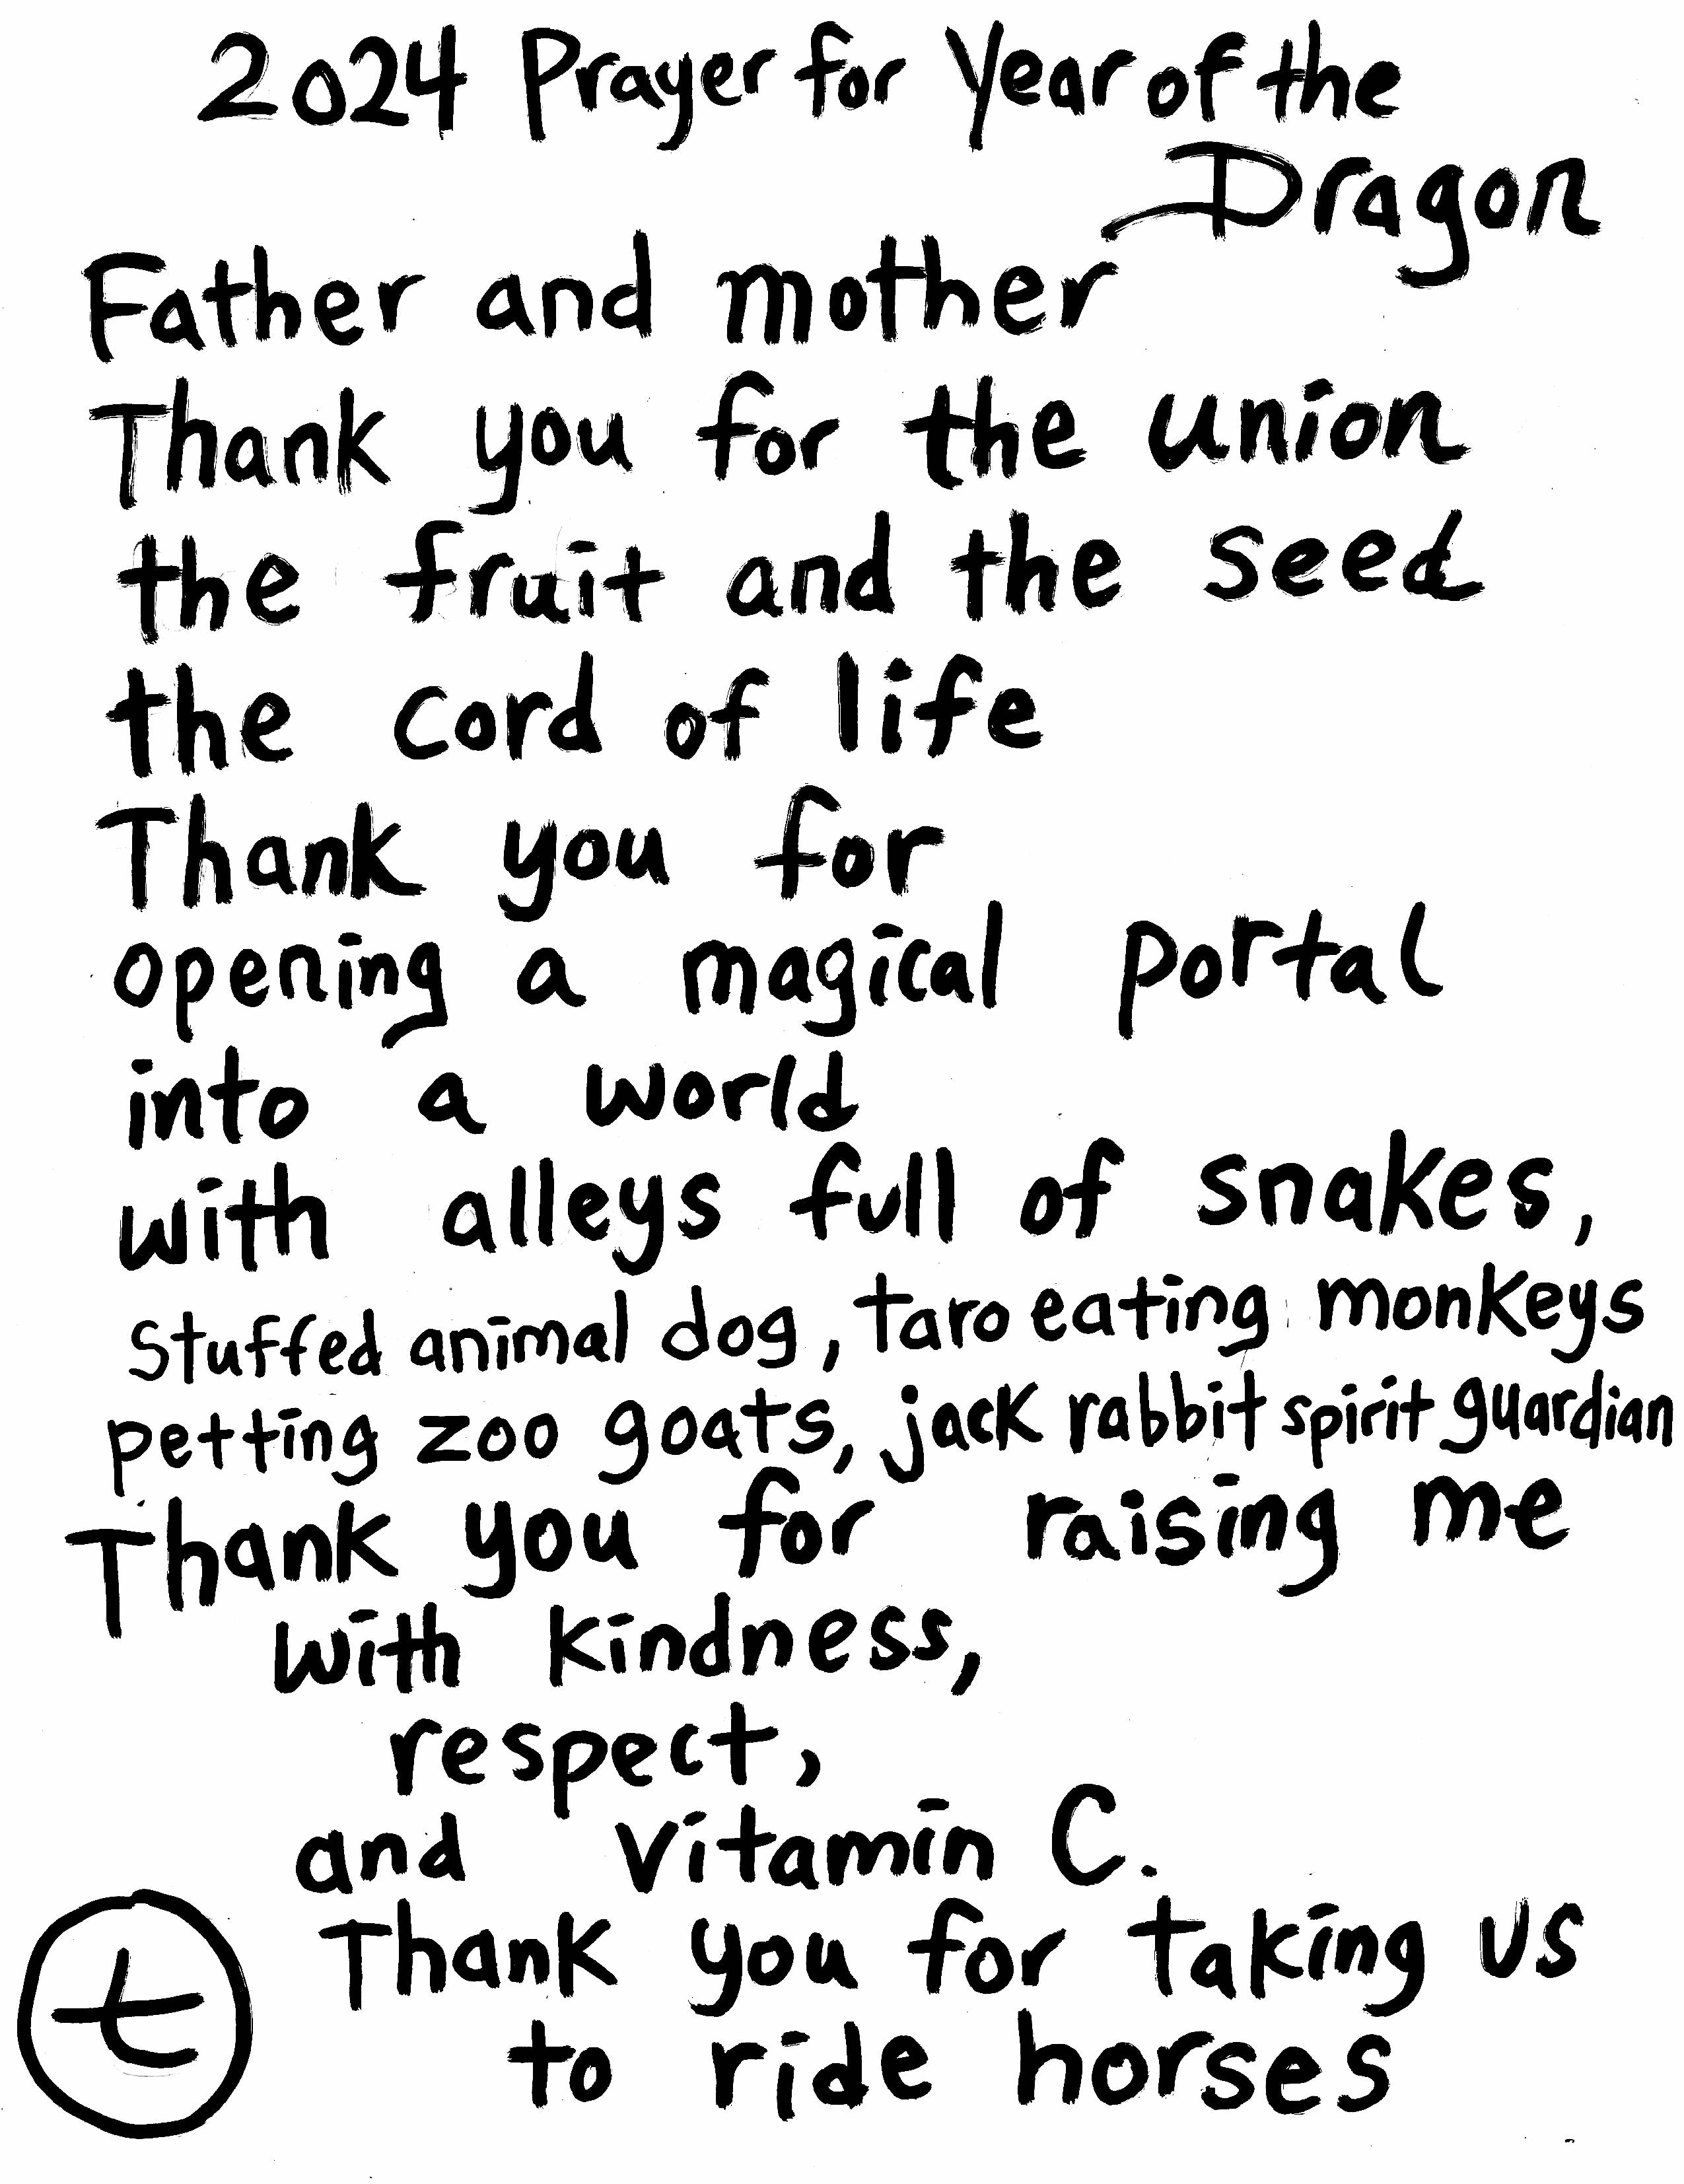 2024 Prayer for Year of the
Dragon
Father and mother
Thank you for the union
the fruit and the seed
the cord of life
Thank you for
opening a magical portal
into a world
with alleys full of snakes,
stuffed animal dog, taro eating monkeys
petting zoo goats, jack rabbit spirit guardian
Thank you for raising me
with kindness,
respect,
and Vitamin C.
Thank you for taking us
to ride horses
t